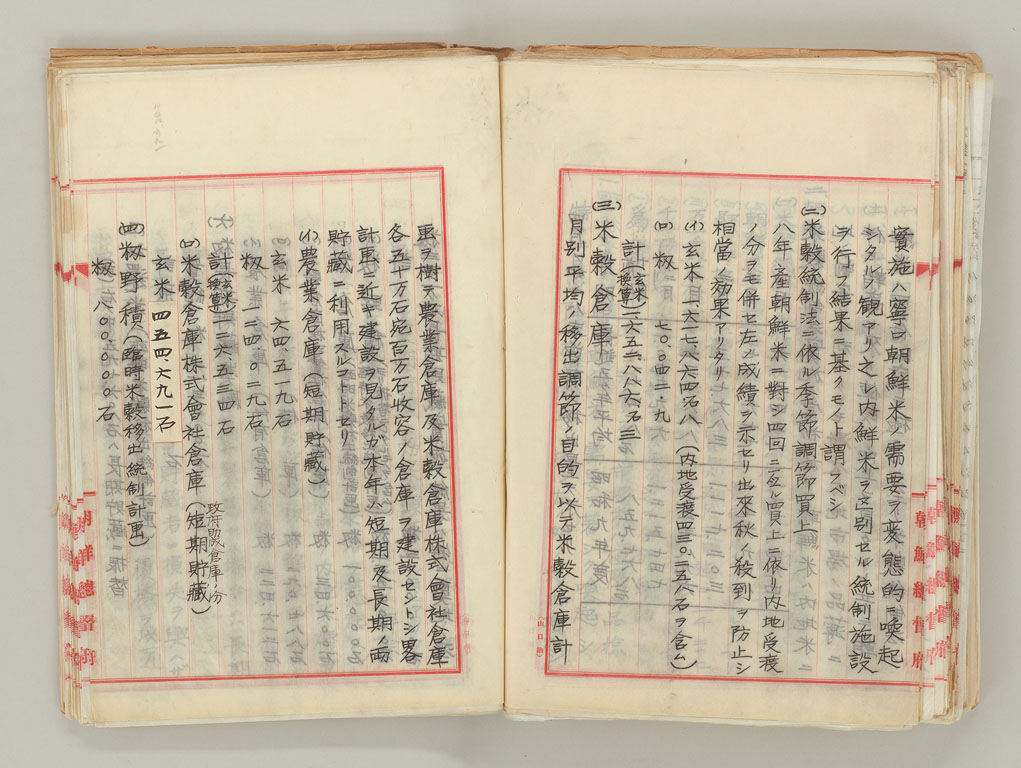 實施ハ寧ロ朝鮮米ノ需要ヲ変態的ニ喚起
シタルヤノ観アリ之レ内鮮米ヲ区別セル統制施設
ヲ行フ結果ニ基クモノト謂フベシ
(二)米穀統制法ニ依ル季節調節買上
八年産朝鮮米ニ對シ四回ニ亙ル買上ニ依リ内地受渡
ノ分ヲモ併セ左ノ成績ヲ示セリ出來秋ノ殺到ヲ防止シ
相當ノ効果アリタリ
(イ)玄米 一、六一七、八六四石八(内地受渡四三〇、二五八石ヲ含ム)
(ロ)籾 七〇、〇四二・九
計(玄米換算)一、六五二、八八六石三
(三)米穀倉庫
月別平均ノ移出調節ノ目的ヲ以テ米穀倉庫計
朝鮮總督府
画ヲ樹テ農業倉庫及米穀倉庫株式會社倉庫
各五十万石宛百万石收容ノ倉庫ヲ建設セントシ畧
計画ニ近キ建設ヲ見タルガ本年ハ短期及長期ノ両
貯藏ニ利用スルコトトセリ
(イ)農業倉庫(短期貯藏)
玄米 六四、五一九石
籾 一二四、〇二九石
計(玄米換算)一二六、五三四石
(ロ)米穀倉庫株式會社倉庫(短期貯藏)
政府助成倉庫ノ分
玄米 四五四六九一石
(四)籾野積(臨時米穀移出統制計画)
籾 一、八〇〇、〇〇〇石
朝鮮總督府